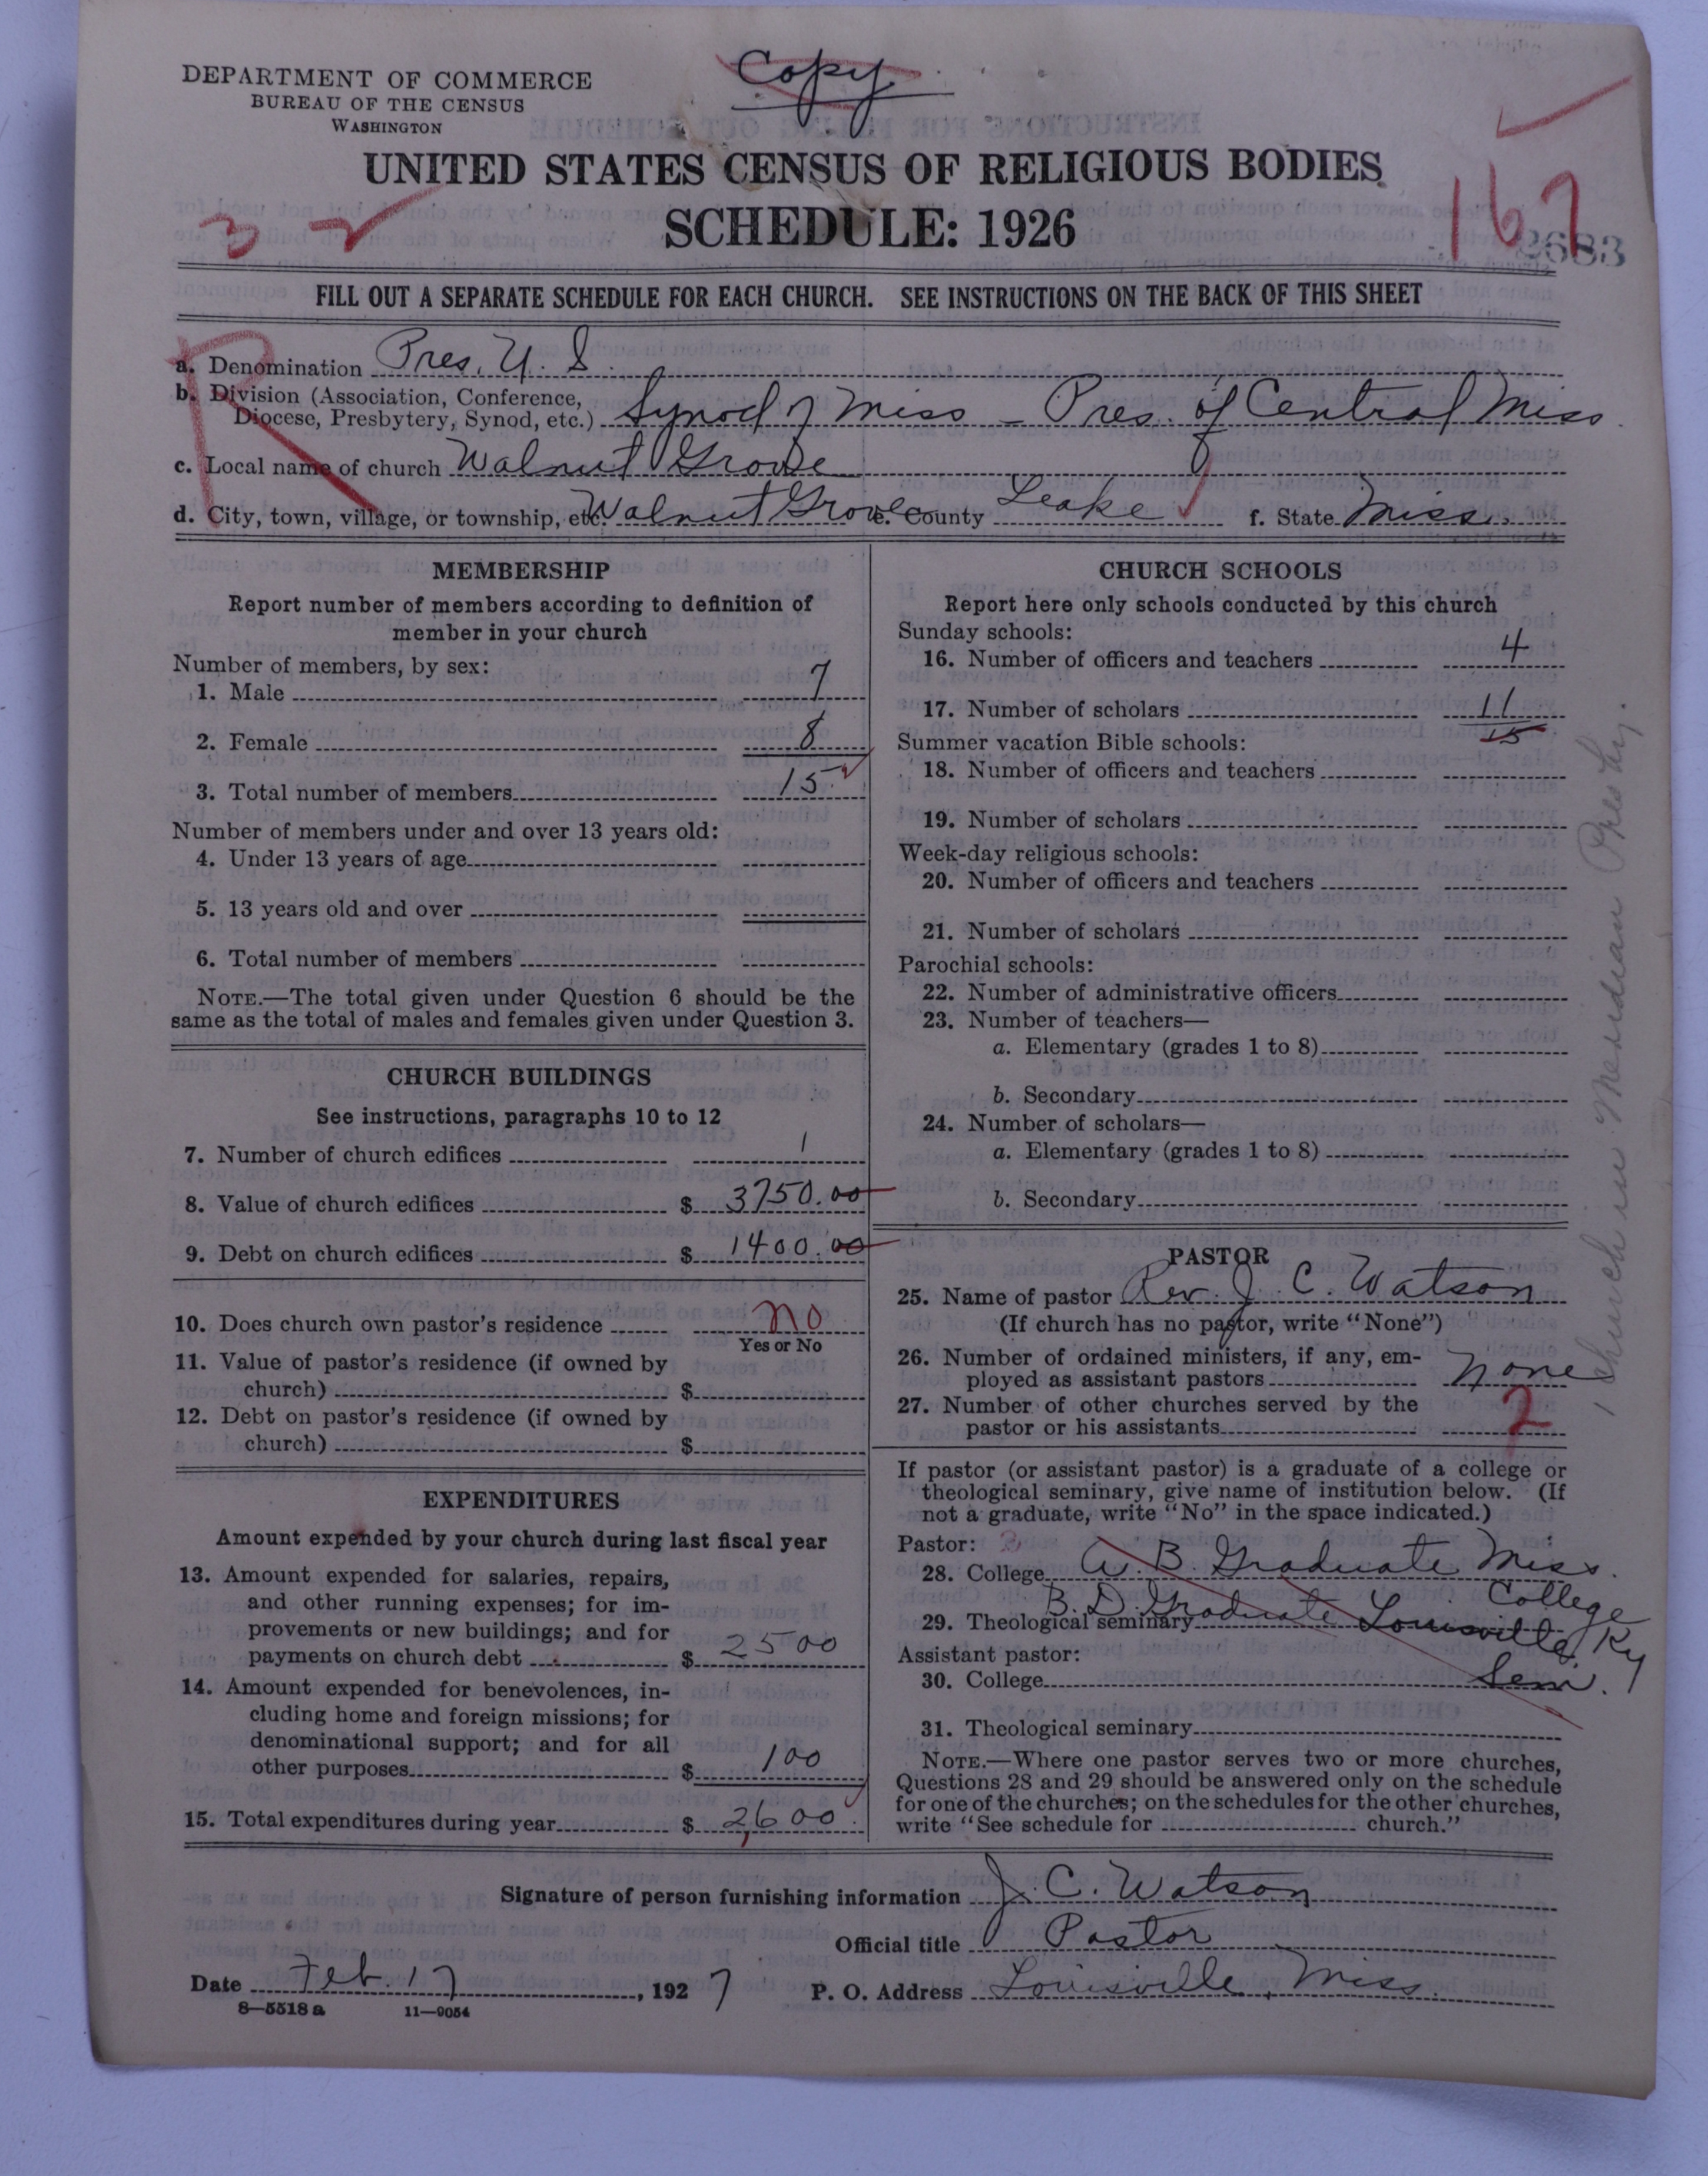 Copy
DEPARTMENT OF COMMERCE
BUREAU OF THE CENSUS
WASHINGTON
UNITED STATES CENSUS OF RELIGIOUS BODIES
SCHEDULE: 1926
3 2
167
2683
FILL OUT A SEPARATE SCHEDULE FOR EACH CHURCH. SEE INSTRUCTIONS ON THE BACK OF THIS SHEET
R
a. Denomination Pres. U. S.
b. Division (Association, Conference,
Diocese, Presbytery, Synod, etc.) Synod of Miss — Pres. of Central Miss.
c. Local name of church Walnut Grove
d. City, town, village, or township, etc. Walnut Grove e. County Leake f. State Miss.
MEMBERSHIP
Report number of members according to definition of
member in your church
Number of members, by sex:
1. Male 7
2. Female 8
3. Total number of members 15
Number of members under and over 13 years old:
4. Under 13 years of age
5. 13 years old and over
6. Total number of members
NOTE.—The total given under Question 6 should be the
same as the total of males and females given under Question 3.
CHURCH BUILDINGS
See instructions, paragraphs 10 to 12
7. Number of church edifices 1
8. Value of church edifices $ 3750.00
9. Debt on church edifices $ 1400.00
10. Does church own pastor's residence no
Yes or No
11. Value of pastor's residence (if owned by
church) $
12. Debt on pastor's residence (if owned by
church) $
EXPENDITURES
Amount expended by your church during last fiscal year
13. Amount expended for salaries, repairs,
and other running expenses; for im-
provements or new buildings; and for
payments on church debt $ 2500
14. Amount expended for benevolences, in-
cluding home and foreign missions; for
denominational support; and for all
other purposes $ 100
15. Total expenditures during year $ 2,600
CHURCH SCHOOLS
Report here only schools conducted by this church
Sunday schools:
16. Number of officers and teachers 4
17. Number of scholars 11
15
Summer vacation Bible schools:
18. Number of officers and teachers
19. Number of scholars
Week-day religious schools:
20. Number of officers and teachers
21. Number of scholars
Parochial schools:
22. Number of administrative officers
23. Number of teachers—
a. Elementary (grades 1 to 8)
b. Secondary
24. Number of scholars—
a. Elementary (grades 1 to 8)
b. Secondary
PASTOR
25. Name of pastor Rev. J. C. Watson
(If church has no pastor, write "None")
26. Number of ordained ministers, if any, em-
ployed as assistant pastors none
27. Number of other churches served by the
pastor or his assistants 2
If pastor (or assistant pastor) is a graduate of a college or
theological seminary, give name of institution below. (If
not a graduate, write "No" in the space indicated.)
Pastor:
28. College A. B. Graduate Miss.
College
29. Theological seminary B. D. Graduate Louisville, Ky
Sem.
Assistant pastor:
30. College
31. Theological seminary
NOTE.—Where one pastor serves two or more churches,
Questions 28 and 29 should be answered only on the schedule
for one of the churches; on the schedules for the other churches,
write "See schedule for church."
Signature of person furnishing information J. C. Watson
Official title Pastor
Date Feb. 17, 1927 P. O. Address Louisville, Miss.
8—5518 a 11—9054
1 church in Meridian Presby.